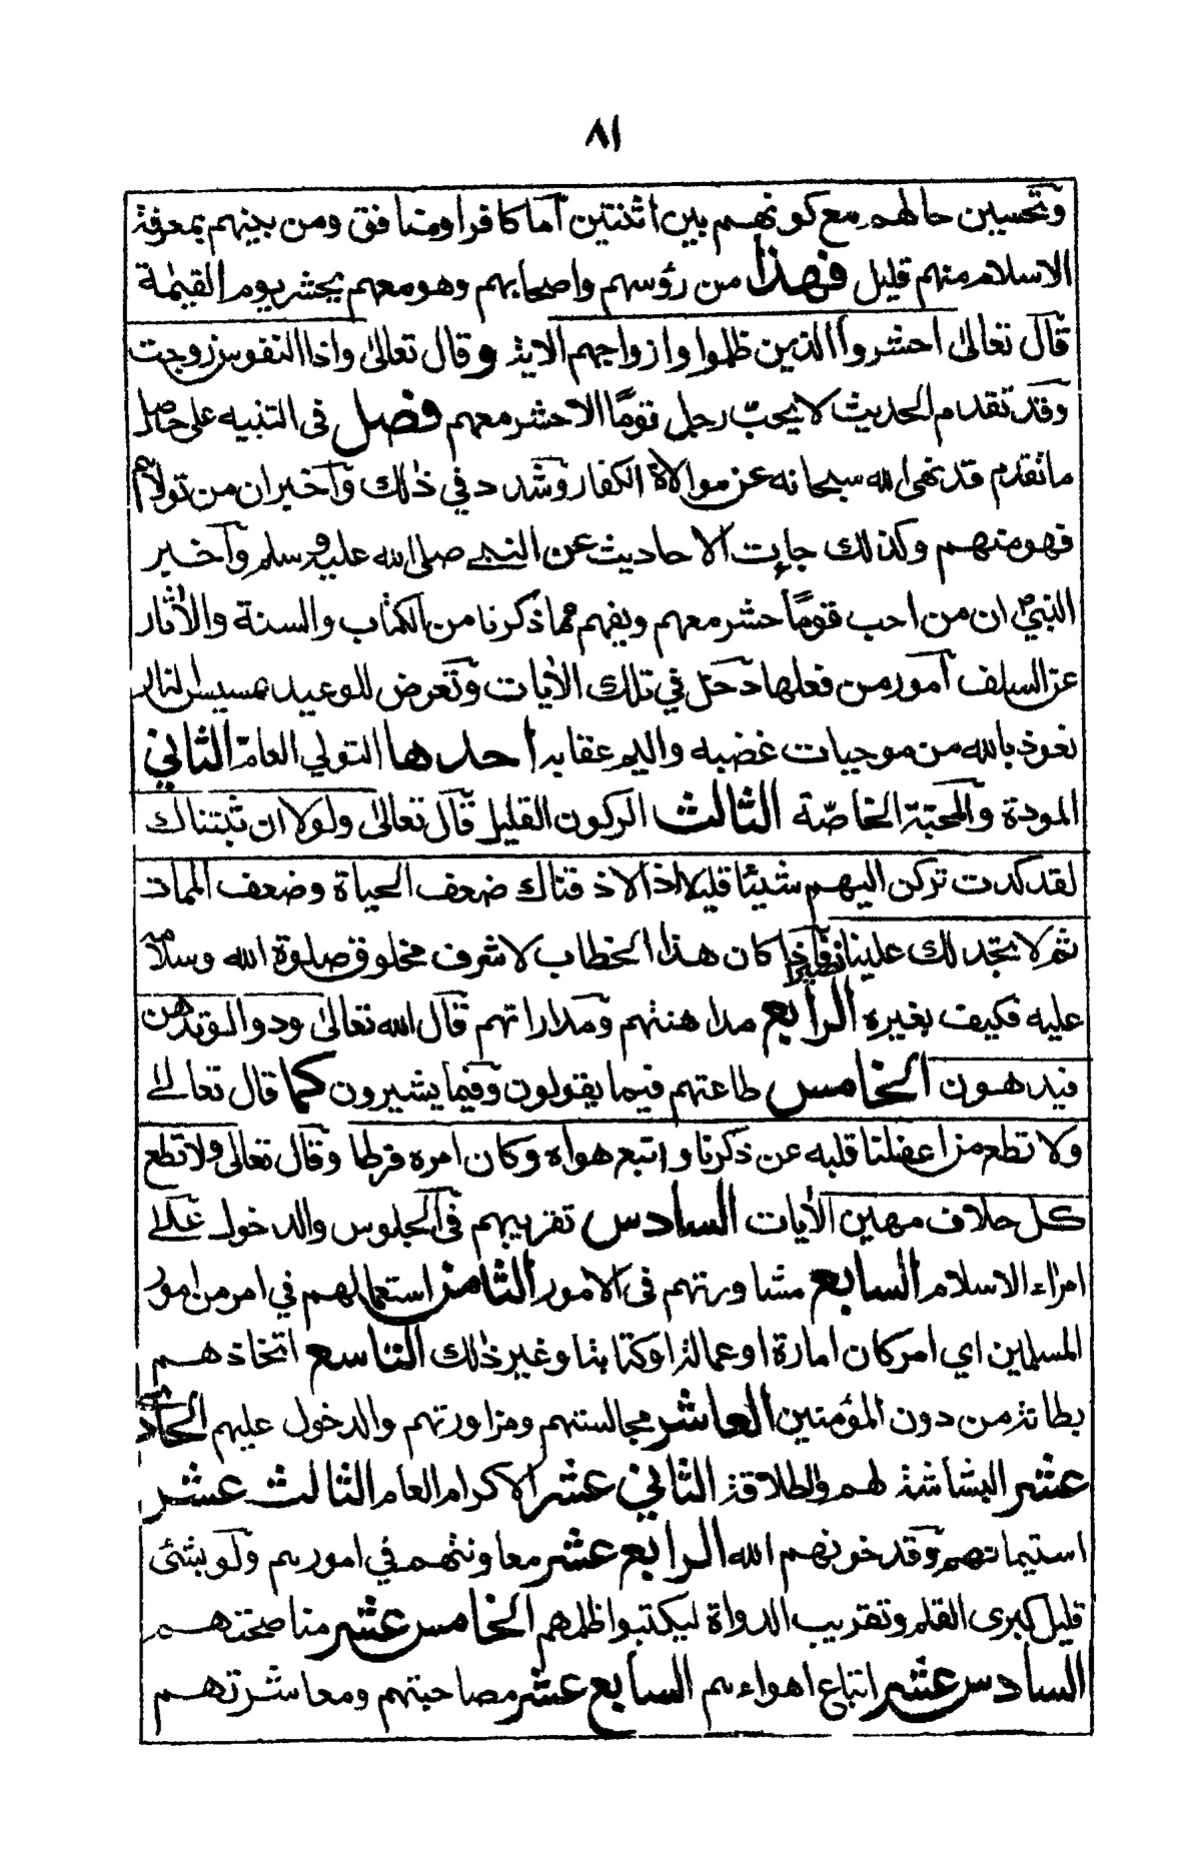 ٨١
وتحسين حالهم مع كونهم بين اثنتين اما كافرا ومنافق ومن بينهم بمعرفة
الاسلام منهم قليل فهذا من رؤسهم واصحابهم وهو معهم يحشر يوم القيٰمة
قال تعالىٰ احشروا الذين ظلموا وازواجهم الاية وقال تعالىٰ واذا النفوس زوجت
وقد تقدم الحديث لا يحبّ رجل قومًا الا حشر معهم فصل في التنبيه على حاصل
ما تقدم قد نهى الله سبحانه عن موالاة الكفار وشدد في ذٰلك واخبر ان من تولاهم
فهو منهم وكذلك جاءت الاحاديث عن النبي صلى الله عليه وسلم واخبر
النبيؐ ان من احب قومًا حشر معهم ويفهم مما ذكرنا من الكتٰاب والسنة والاٰثار
عن السلف امور من فعلها دخل في تلك الاٰيات وتعرض للوعيد بمسيس النار
نعوذ بالله من موجبات غضبه واليم عقابه احدها التولي العامّ الثاني
المودة والمحبّة الخاصّة الثالث الركون القليل قال تعالىٰ ولولا ان ثبتناك
لقد كدت تركن اليهم شيئا قليلا اذا لاذقناك ضعف الحياة وضعف الممات
ثم لا تجد لك علينا نصيرا فاذا كان هذا الخطاب لاشرف مخلوق صلوة الله وسلامه
عليه فكيف بغيره الرابع مداهنتهم ومداراتهم قال الله تعالىٰ ودوا لو تدهن
فيدهنون الخامس طاعتهم فيما يقولون وفيما يشيرون كما قال تعالى
ولا تطع من اغفلنا قلبه عن ذكرنا واتبع هواه وكان امره فرطا وقال تعالى ولا تطع
كل حلاف مهين الاٰيات السادس تقريبهم في الجلوس والدخول على
امراء الاسلام السابع مشاورتهم في الامور الثامن استعمالهم في امر من امور
المسلمين اي امر كان امارة او عمالة او كتابة او غير ذٰلك التاسع اتخاذهم
بطانة من دون المؤمنين العاشر مجالستهم ومزاورتهم والدخول عليهم الحادي
عشر البشاشة لهم والطلاقة الثاني عشر الاكرام العام الثالث عشر
استيمانهم وقد خونهم الله الرابع عشر معاونتهم في امورهم ولو بشئ
قليل كبرى القلم وتقريب الدواة ليكتبوا ظلمهم الخامس عشر مناصحتهم
السادس عشر اتباع اهواءهم السابع عشر مصاحبتهم ومعاشرتهم